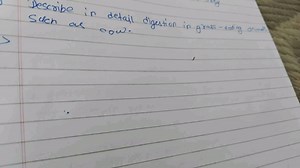 Describe in detail digestion in grass-eating
Such as cow.